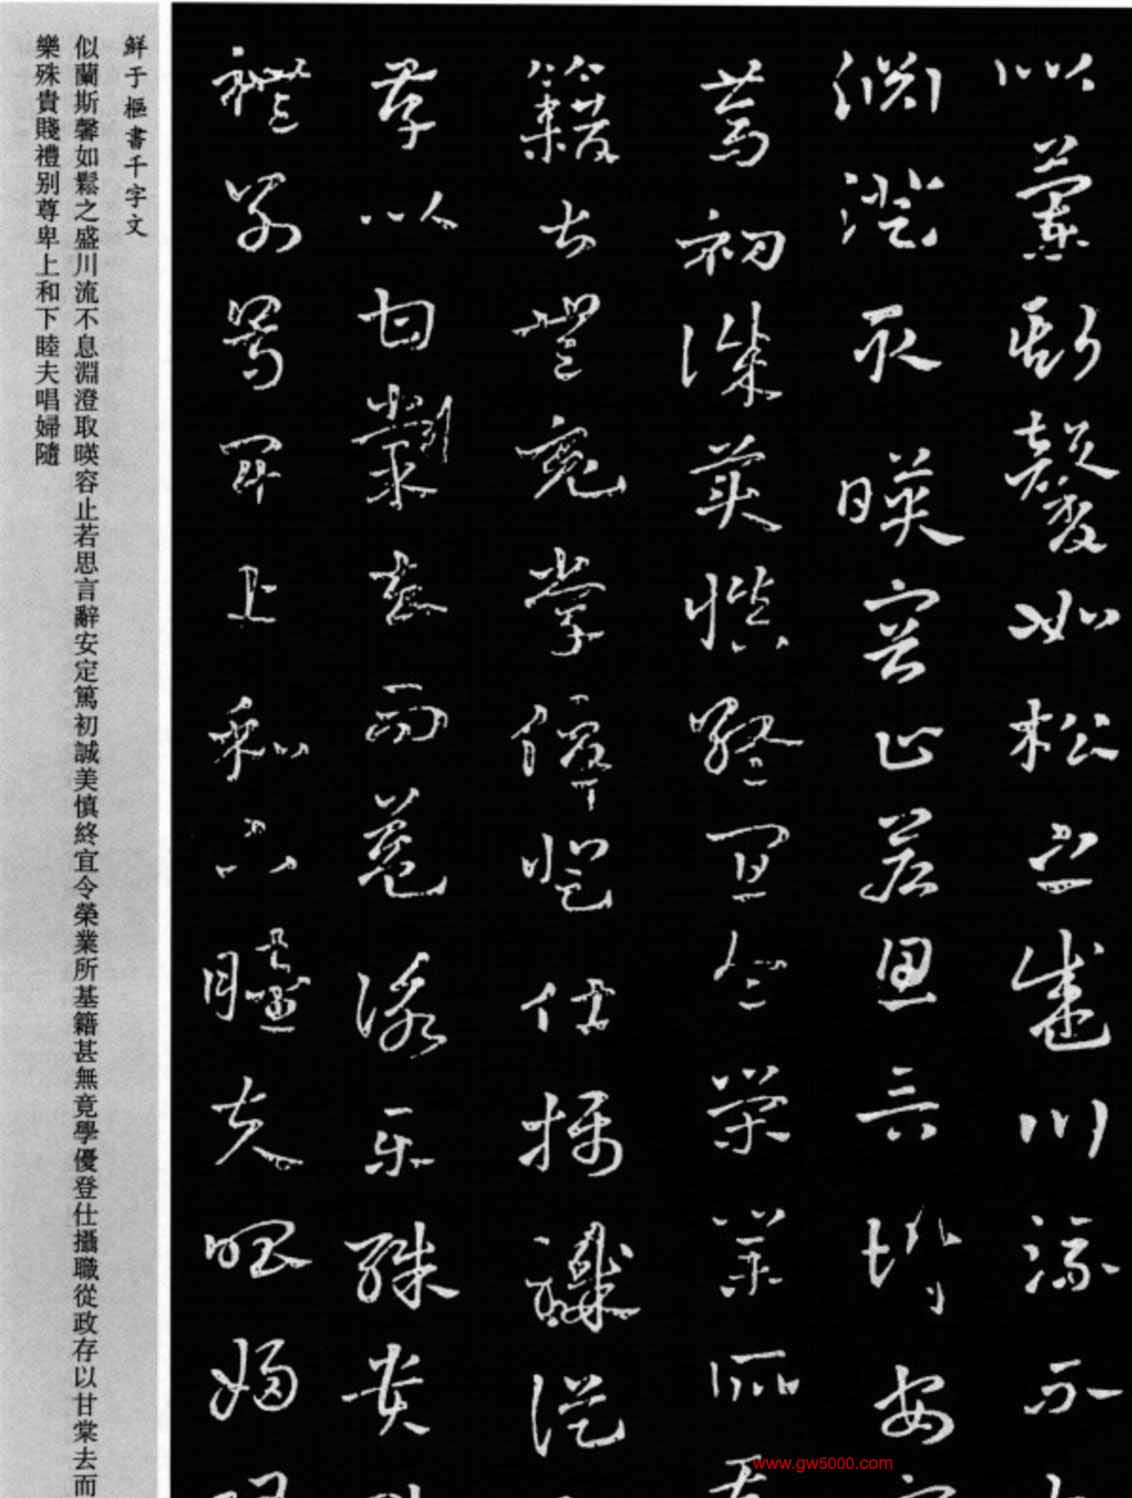 似蘭斯馨如松之盛川流不
淵澄取暎容止若思言辭安
篤初誠美慎終宜令榮業所
籍甚無竟學優登仕攝職從
存以甘棠去而益詠樂殊貴
禮別尊卑上和下睦夫唱婦
鮮于樞書千字文
似蘭斯馨如鬆之盛川流不息淵澄取暎容止若思言辭安定篤初誠美慎終宜令榮業所基籍甚無竟學優登仕攝職從政存以甘棠去而
樂殊貴賤禮别尊卑上和下睦夫唱婦隨
www.gw5000.com